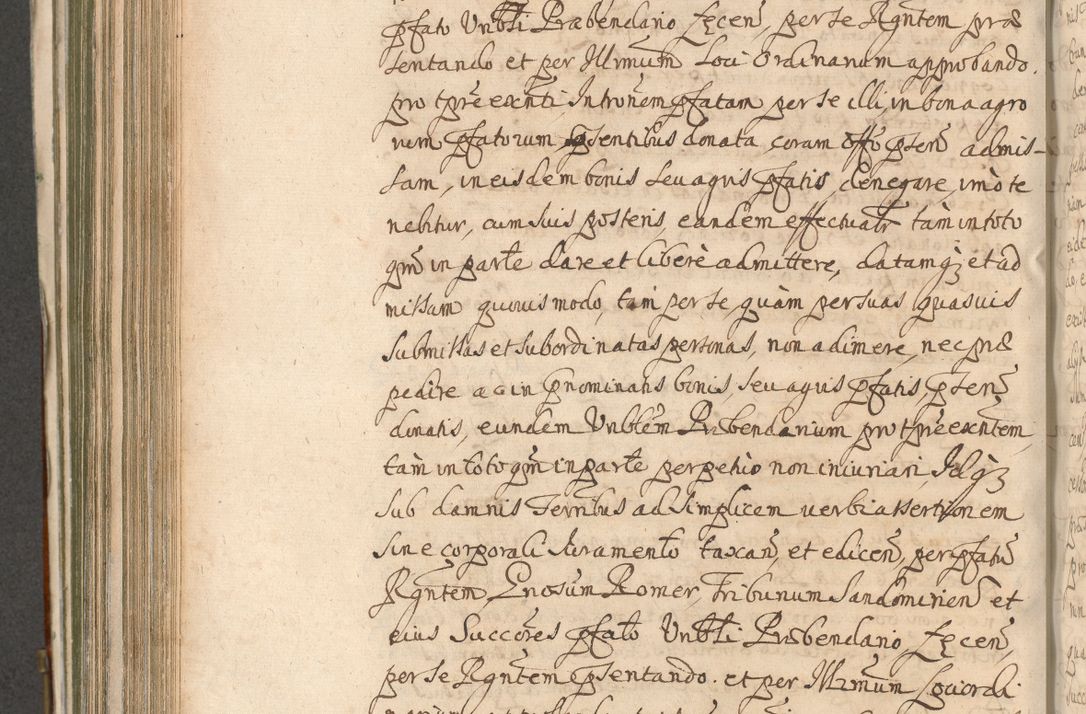 pfato Vnbłi Præbendario Łęcen̄, per se Rgntem præ
sentando et per Illrmum Loci Ordinarium approbando.
pro tpre exnti, Intronem pfatam, per se illi, in bona agro
rum pfatorum psentibus donata, coram Offo psen̄ admis-
sam, in eisdem bonis seu agris pfatis, denegare, imò te
nebitur, cum suis posteris, eandem effectualr tàm in toto
qm̄ in parte dare et liberè admittere, datamq; et ad
missam quovis modo, tam per se, quàm per suas quasvis
submissas et subordinatas personas, non adimere, nec præ
pedire ac in pnominatis bonis, seu agris pfatis, psen̄
donatis, eundem Vnblem Præbendarium pro tpre exntem
tàm in toto qm̄ in parte perpetuo non iniuriari, Idq;
sub damnis Terrībus ad simplicem verbi assertionem
sine corporali Iuramento taxan̄, et edicen̄, per pfatū
Rgntem, Gnosum Romer, Tribunum Sandomirien̄ et
eius Succōres pfato Vnbłi Præbendario, Łęcen̄,
per se Rgntem psentando. et per Illrmum Loci ordi